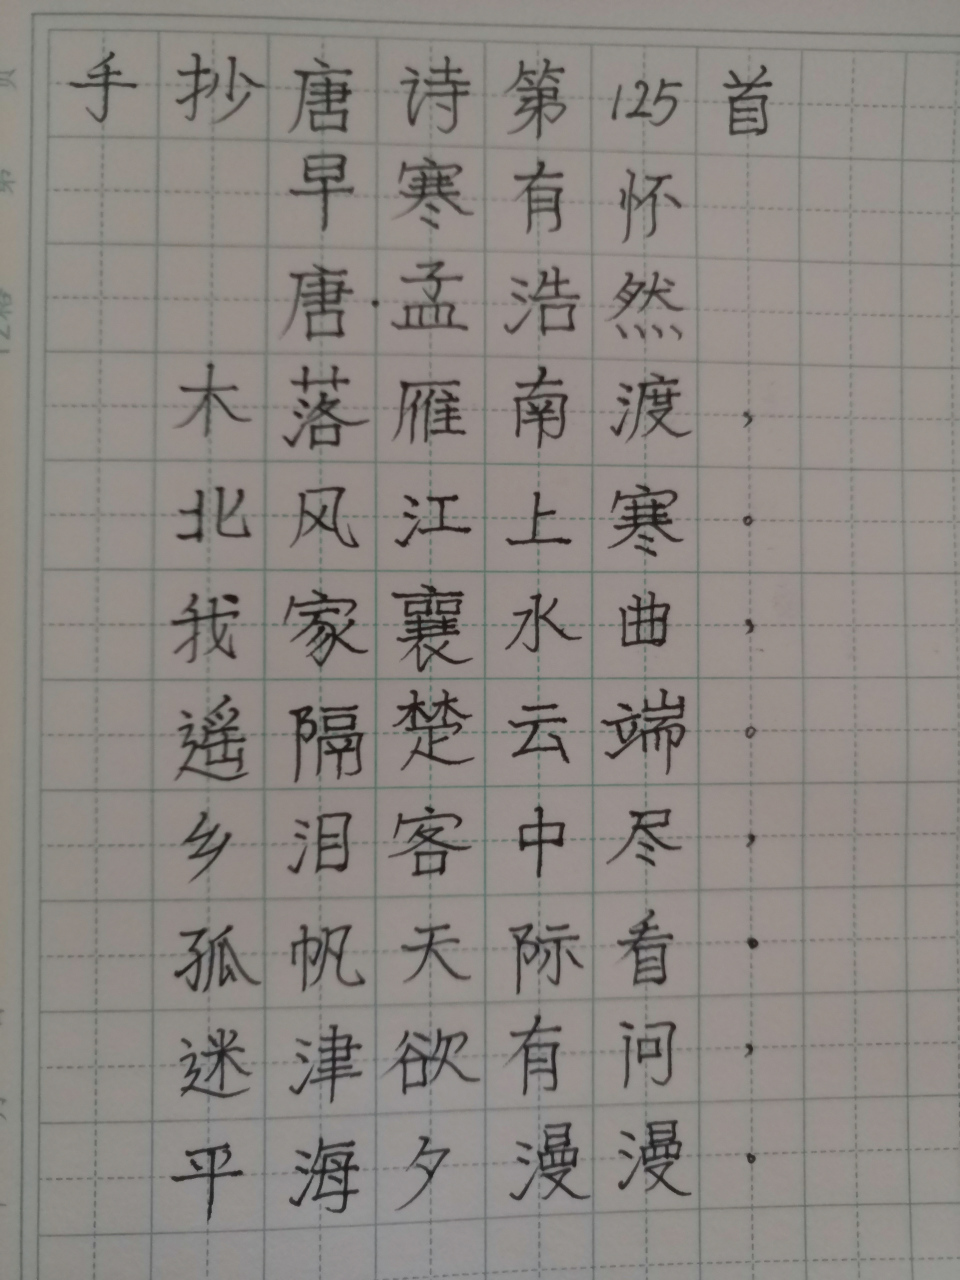 手抄唐诗第125首
早寒有怀
唐·孟浩然
木落雁南渡，
北风江上寒。
我家襄水曲，
遥隔楚云端。
乡泪客中尽，
孤帆天际看。
迷津欲有问，
平海夕漫漫。